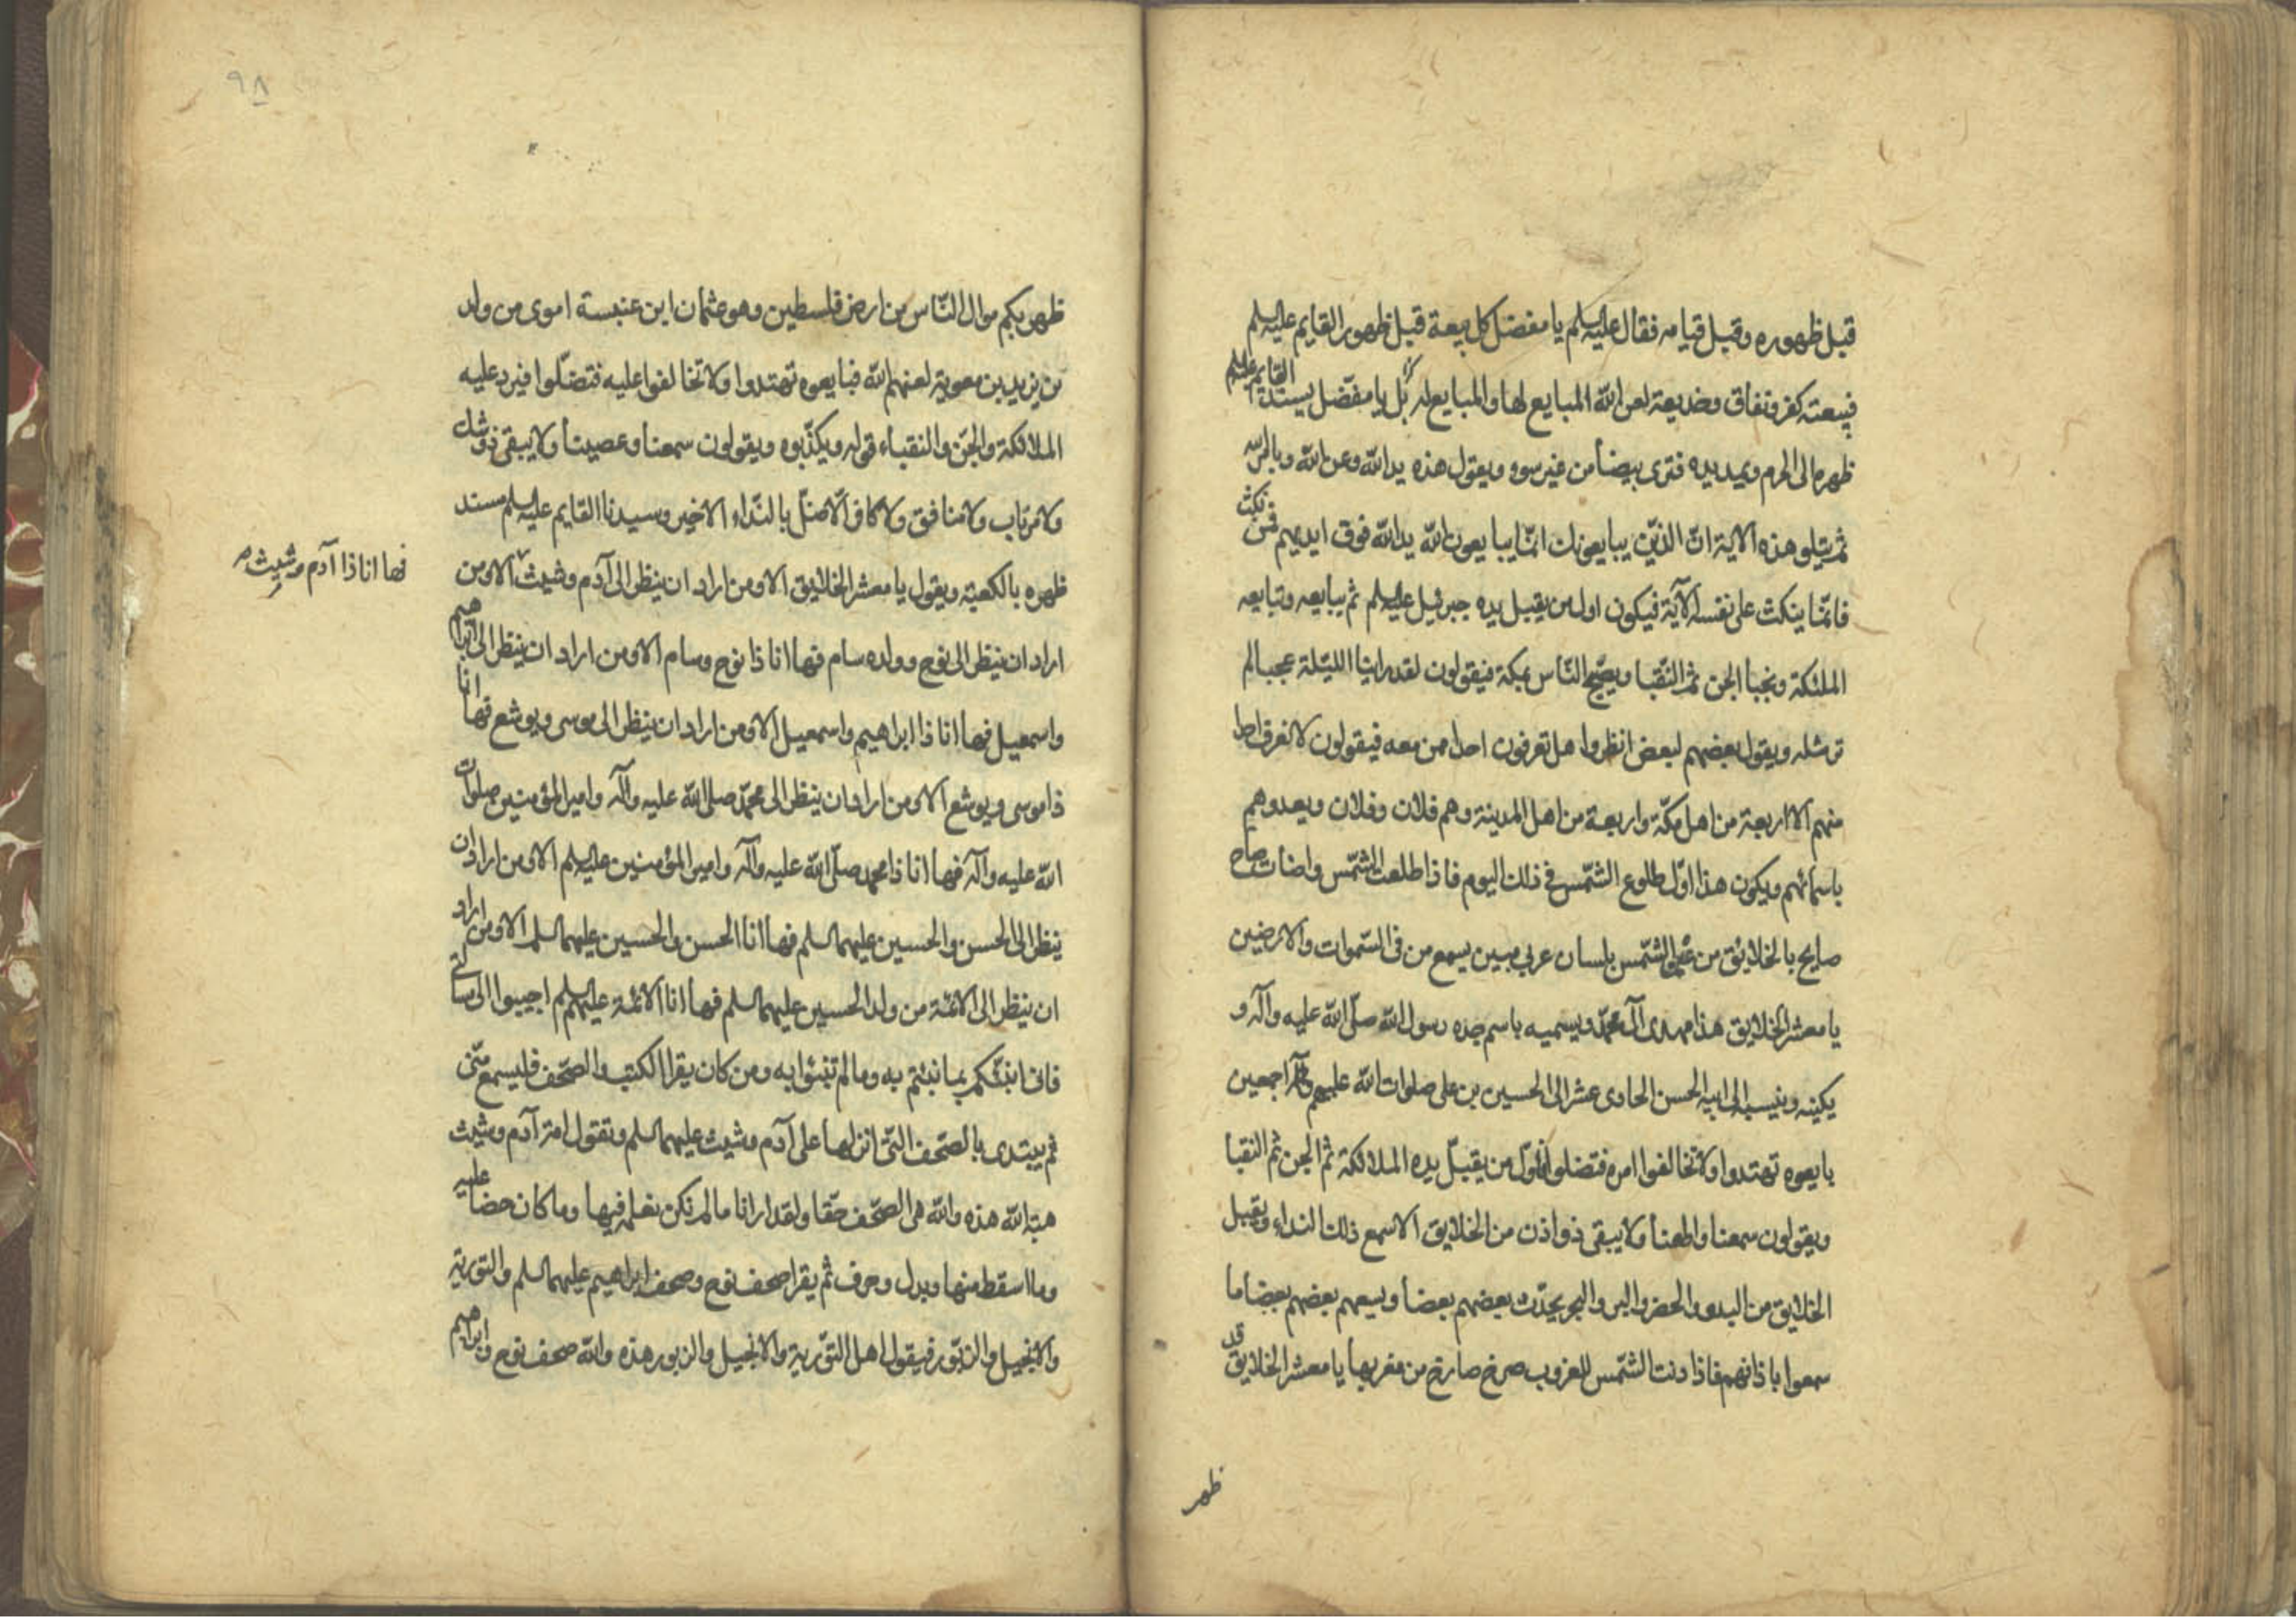 قبل ظهوره وقبل قيامه فقال عليه السلم يا مفضل كل بيعة قبل ظهور القايم عليه السلم
فبيعته كفر ونفاق وخديعة لعن الله المبايع لها والمبايع له بل يا مفضل يسند القايم عليه السلم
ظهره الى الحرم ويمد يده فترى بيضا من غير سوء ويقول هذه يد الله وعن الله وبامر الله
ثم يتلو هذه الاية ان الذين يبايعونك انما يبايعون الله يد الله فوق ايديهم فمن نكث
فانما ينكث على نفسه الآية فيكون اول من يقبل يده جبرئيل عليه السلم ثم يبايعه وتبايعه
الملئكة ونجبا الجن ثم النقبا ويصبح الناس بمكة فيقولون لقد راينا الليلة عجبا لم
نر مثله ويقول بعضهم لبعض انظروا هل تعرفون احدا ممن معه فيقولون لا نعرف احدا
منهم الا اربعة من اهل مكة واربعة من اهل المدينة وهم فلان وفلان ويعدوهم
باسمائهم ويكون هذا اول طلوع الشمس في ذلك اليوم فاذا طلعت الشمس واضات صاح
صايح بالخلائق من عين الشمس بلسان عربي مبين يسمع من في السموات والارضين
يا معشر الخلايق هذا مهدى آل محمد ويسميه باسم جده رسول الله صلى الله عليه وآله و
يكنيه وينسبه الى ابيه الحسن الحادى عشر الى الحسين بن على صلوات الله عليهم اجمعين
بايعوه تهتدوا ولا تخالفوا امره فتضلوا فاول من يقبل يده الملائكة ثم الجن ثم النقبا
ويقولون سمعنا واطعنا ولا يبقى ذو اذن من الخلايق الا سمع ذلك النداء ويقبل
الخلايق من البدو والحضر والبر والبحر يحدث بعضهم بعضا ويسمع بعضهم بعضا ما
سمعوا باذانهم فاذا دنت الشمس للغروب صرخ صارخ من مغربها يا معشر الخلايق قد
ظهر
٩٨
ظهر بكم موال الناس من ارض فلسطين وهو عثمان ابن عنبسة اموى من ولد
بن يزيد بن معوية لعنهم الله فبايعوه تهتدوا ولا تخالفوا عليه فتضلوا فيرد عليه
الملائكة والجن والنقباء قوله ويكذبوه ويقولون سمعنا وعصينا ولا يبقى ذو شك
ولا مرتاب ولا منافق ولا كافر الا ضل بالنداء الاخير وسيدنا القايم عليه السلم مسند
ظهره بالكعبة ويقول يا معشر الخلايق الا ومن اراد ان ينظر الى آدم وشيث الا ومن
فها انا ذا آدم وشيث
اراد ان ينظر الى نوح وولده سام فها انا ذا نوح وسام الا ومن اراد ان ينظر الى ابراهيم
واسمعيل فها انا ذا ابراهيم واسمعيل الا ومن اراد ان ينظر الى موسى ويوشع فها انا
ذا موسى ويوشع الا ومن اراد ان ينظر الى محمد صلى الله عليه وآله وامير المؤمنين صلوات
الله عليه وآله فها انا ذا محمد صلى الله عليه وآله وامير المؤمنين عليه السلم الا ومن اراد ان
ينظر الى الحسن والحسين عليهما السلم فها انا الحسن والحسين عليهما السلم الا ومن اراد
ان ينظر الى الائمة من ولد الحسين عليهما السلم فها انا الائمة عليهم السلم اجيبوا الى مسالتى
فانى انبئكم بما نبئتم به وما لم تنبئوا به ومن كان يقرا الكتب والصحف فليسمع منى
ثم يبتدى بالصحف التى انزلها على آدم وشيث عليهما السلم وتقول امة آدم وشيث
هبة الله هذه والله هى الصحف حقا ولقد ارانا ما لم نكن نعلمه فيها وما كان خفا عليه
وما اسقط منها وبدل وحرف ثم يقرا صحف نوح وصحف ابراهيم عليهما السلم والتورية
والانجيل والزبور فيقول اهل التورية والانجيل والزبور هذه والله صحف نوح وابراهيم